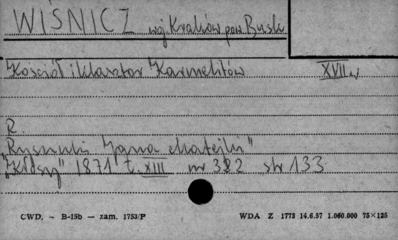 WIŚNICZ woj. Kraków pow. Busk
Kościół i klasztor Karmelitów XVII w.
R.
Rysunki Jana Matejki"
"Kłosy" 1871 t. XIII nr 322 str 133
CWD, - B-15b - zam. 1753/P WDA Z 1773 14.6.57 1.060.000 75×125